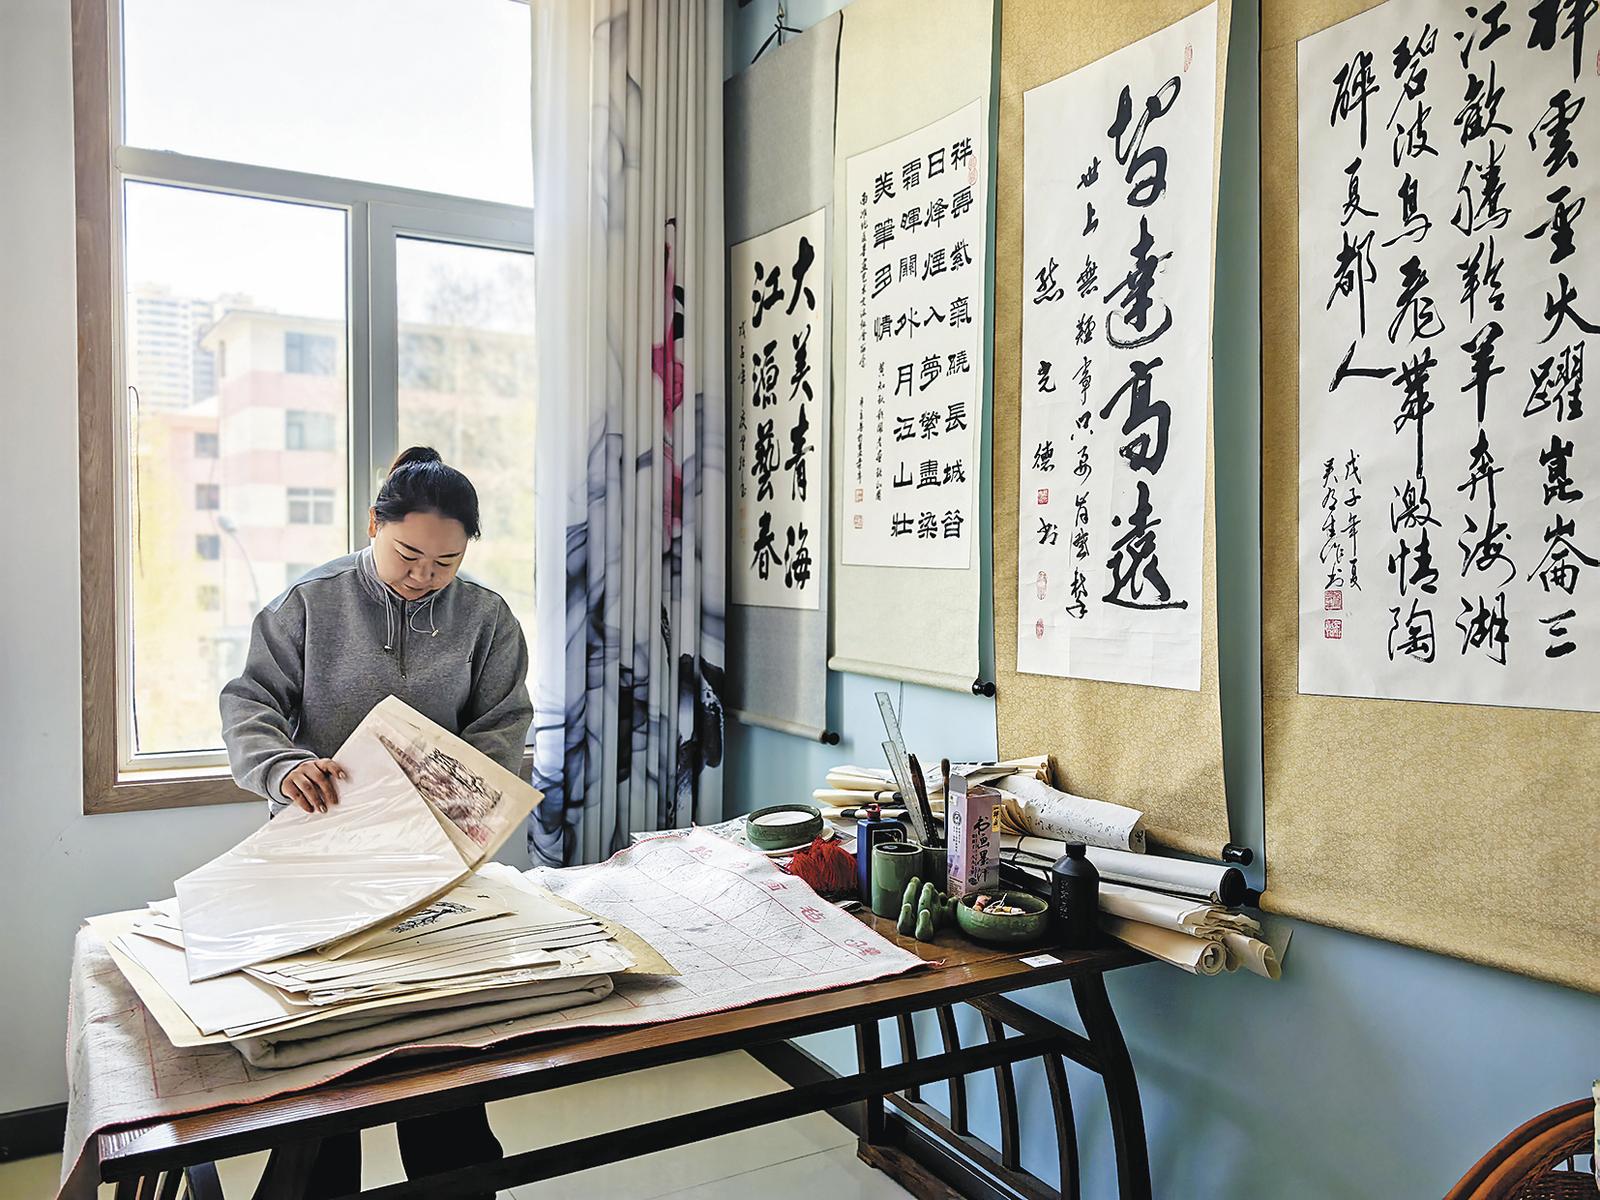 大美青海
江源藝春
祥雲紫氣繞長城昔
日烽煙入夢縈盡染
霜暉關外月江山壯
美筆多情
智達高遠
世上無難事只要肯登攀
光德书
祥雲聖火躍崑崙三
江歡騰羚羊奔海湖
碧波鳥飛舞激情陶
醉夏都人
戊子年夏
书画墨汁